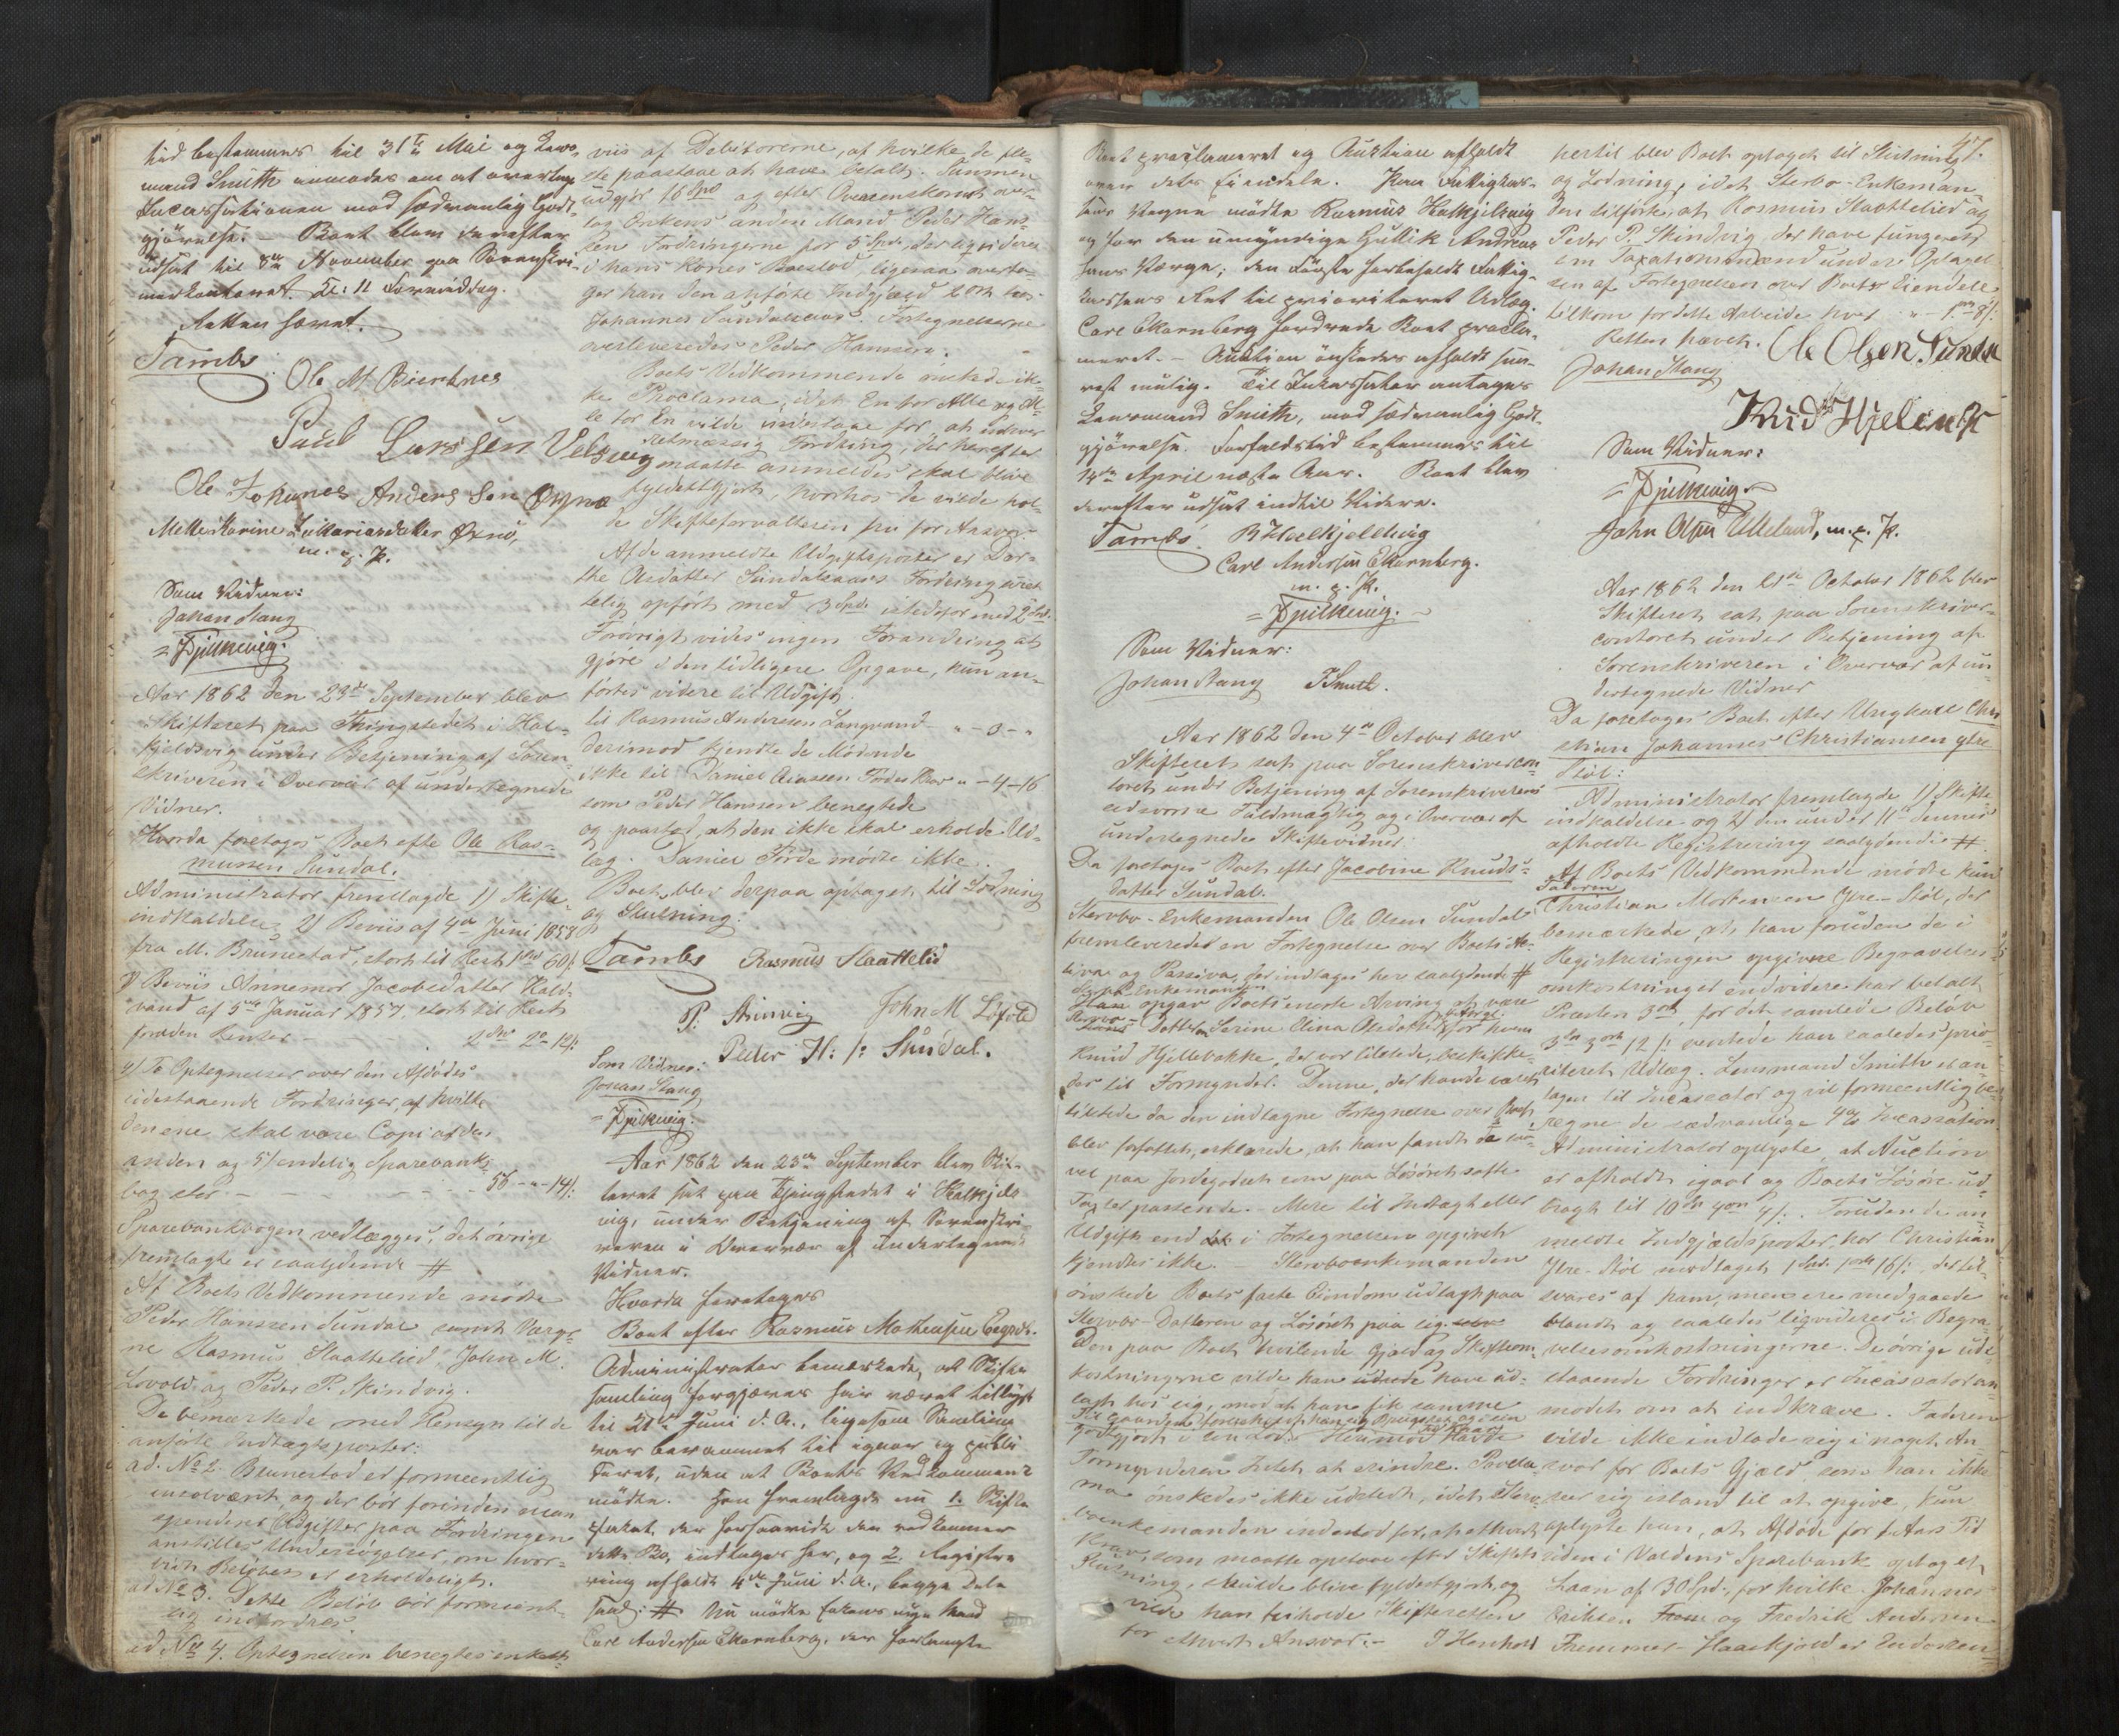 tid bestemmes til 31te Mai og Lens-
mand Smith anmodes om at overtage
Incassationen mod sædvanlig Godt-
gjørelse. – Boet blev derefter
udsat til 8de November paa Sorenskri-
verkontoret Kl. 11 Formiddag.
Retten hævet.
Tambs
Ole M Bierknes
Paul Larssen Velsvig
Ole Johanes Anders Søn
Mette Karine Zakariasdatter
m. f. P.
Som Vidner:
Johan Stang
Aar 1862 den 23de September blev
Skifteret paa Thingstedet i Hal-
kjeldsvig under Betjening af Soren-
skriveren i Overvær af undertegnede
Vidner.
Hvorda foretoges Boet efte Ole Ras-
mussen Sundal.
Administrator fremlagde 1) Skifte-
indkaldelse, 2) Beviis af 4de Juni 1858
fra M. Brunestad, stort til Rest 1 Spd 60 s
3) Beviis Annemor Jacobsdatter Kald-
vand af 5te Januar 1857, stort til Rest
foruden Renter - - 2 Spd 2 12 s
4) To Optegnelser over den Afdødes
udestaaende Fordringer, af hvilke
den ene skal være Copi af den
anden og 5) endelig Sparebanks-
bog stor - - - - 56 - „ - 14 s
Sparebankbogen vedlægges, det øvrige
fremlagte er saalydende #
Af Boets Vedkommende mødte
Peder Hanssen Sundal samt Værge-
ne Rasmus Slaattelied, John M.
Løvold og Peder P. Skindvig.
De bemærkede med Hensyn til de
anførte Indtægtsposter:
ad. No 2. Brunestad er formeentlig
insolvent, og der bør forinden man
spenderer Udgifter paa Fordringen
anstilles Undersøgelser, om hvor-
vidt Beløbet er erholdeligt.
ad No 3. Dette Beløb bør formeent-
lig indfordres.
ad No 4. Optegnelsen benegtes enkelt-
viis af Debitorerne, af hvilke de fle-
ste paastaae at have betalt. Summen
udgjør 16 Spd og efter Overenskomst over-
tog Enkens anden Mand Peder Hans-
sen Fordringerne for 5 Spd, der liqvideres
i hans Kones Boeslod, ligesaa overta-
ger han den anførte Indgjæld 2 ort hos
Johannes Sundalsaas. Fortegnelserne
overleveredes Peder Hanssen.
Boets Vedkommende ønskede ik-
ke Proclama, idet En for Alle og Al-
le for En vilde indestaae for, at enhver
retmæssig Fordring, der herefter
maatte anmeldes skal blive
fyldestgjort, hvorhos de vilde hol-
de Skifteforvalteren fri for Ansvar.
Af de anmeldte Udgiftsposter er Dor-
the Olsdatter Sundalsaas Fordring uret-
telig opført med 3 Spd. istedetfor med 2 Spd.
Forøvrigt vides ingen Forandring at
gjøre i den tidligere Opgave, kun an-
førtes videre til Udgift
til Rasmus Anderssen Langvand „ - 3 - „
derimod kjendte de Mødende
ikke til Daniel Aiassen Førdes Krav „ - 4 - 16
som Peder Hanssen benegtede
og paastod, at den ikke skal erholde Ud-
læg. Daniel Førde mødte ikke.
Boet blev derpaa optaget til Lodning
og Slutning.
Tambs Rasmus Slaattelid
P: Skinvig John M Løvold
Peder H: s: Sundal.
Som Vidner:
Johan Stang
Aar 1862 den 23de September blev Skif-
teret sat paa Thingstedet i Halkjels-
vig, under Betjening af Sorenskri-
veren i Overvær af undertegnede
Vidner.
Hvorda foretoges
Boet efter Rasmus Matheusen
Administrator bemærkede, at Skifte-
samling forgjæves har været tillyst
til 21de Juni d. A., ligesom Samling
var berammet til igaar og publi-
ceret, uden at Boets Vedkommende
mødte. Han fremlagde nu 1. Skifte-
forkal, der forsaavidt den vedkommer
dette Bo, indtages her, og 2. Registre-
ring afholdt 4de Juni d. A., begge Dele
saal: # Nu mødte Enkens nye Mand
Carl Andersen Ekornberg, der forlangte
47.
Boet proclameret og Auktion afholdt
over dets Eiendele. Paa Fattigkas-
sens Vegne mødte Rasmus Halkjelsvig
og for den umyndige Gullik Andreas
hans Værge; den Første forbeholdt Fattig-
kassens Ret til prioriteret Udlæg.
Carl Ekornberg fordrede Boet procla-
meret. – Auktion ønskedes afholdt sna-
rest mulig. Til Inkassator antages
Lensmand Smith, mod sædvanlig Godt-
gjørelse. Forfaldstid bestemmes til
14de April næste Aar. Boet blev
derefter udsat indtil Videre.
Tambs. R Halkjelsvig
Carl Andersen Ekornberg.
m. f. P.
Som Vidner:
Johan Stang Smith.
Aar 1862 den 4de October blev
Skifteret sat paa Sorenskrivercon-
toret under Betjening af Sorenskriverens
edsvorne Fuldmægtig og i Overvær af
undertegnede Skiftevidner.
Da foretoges Boet efter Jacobine Knuds-
datter Sundal.
Stervbo-Enkemanden Ole Olsen Sundal
fremleverede en Fortegnelse over Boets Ac-
tiva og Passiva, der indtages her saalydende #
Stervbo-Enkemanden
opgav Boets eneste Arving at være
Datteren Serine Olina Olsdatter for hvem
Knud Hjellebakke, der var tilstede, beskikke-
des til Formynder. Denne, der havde været
tilstede da den indtagne Fortegnelse over Boet
blev forfattet, erklærede, at han fandt de saa-
vel paa Jordegodset som paa Løsøret satte
Taxter passende. – Mere til Indtægt eller
Udgift end i Fortegnelsen opgivet
kjendtes ikke. – Stervboenkemanden
ønskede Boets faste Eiendom udlagt paa
Stervbo-Datteren og Løsøret paa sig.
Den paa Boet hvilende Gjæld og Skifteom-
kostningerne vilde han udrede have ud-
lagt hos sig, mod at han fik samme
godtgjort i sin Lod. Herimod havde
Formynderen Intet at erindre. Procla-
ma ønskedes ikke udstedt, idet Sterv-
boenkemanden indestod for, at ethvert
Krav, som maatte opstaae efter Skiftets
Slutning, skulde blive fyldestgjort, og
vilde han friholde Skifteretten
for ethvert Ansvar. – I Henhold
hertil blev Boet optaget til Slutning
og Lodning, idet Sterbo-Enkeman-
den tilføiede, at Rasmus Slaattelied og
Peder P. Skindvig, der have fungeret
som Taxationsmænd under Optagel-
sen af Fortegnelsen over Boets Eiendele
tilkom for dette Arbeide hver „ - 1 ort 8 s.
Retten hævet. Ole Olsen Sundal
Johan Stang
Knud Hjelle
Som Vidner:
John Olsen Ulleland, m. f. P.
Aar 1862 den 21de October 1862 blev
Skifteret sat paa Sorenskriver-
contoret under Betjening af
Sorenskriveren i Overvær af un-
dertegnede Vidner
Da foretoges Boet efter Ungkarl Chri-
stian Johannes Christiansen ytre
Støl:
Administrator fremlagde 1) Skifte-
indkaldelse og 2) den under 11te dennes
afholdte Registrering saalydende #
Af Boets Vedkommende mødte kun
Faderen
Christian Mortensen Ytre-Støl, der
bemærkede, at han foruden de i
Registreringen opgivne Begravelses-
omkostninger endvidere har betalt
Præsten 3 ort, for det samlede Beløb
3 Spd 3 ort 12 s. ventede han saaledes prio-
riteret Udlæg. Lensmand Smith er an-
tagen til Incassator og vil formeentlig be-
regne de sædvanlige 4% Incassation.
Administrator oplyste, at Auction
er afholdt igaar og Boets Løsøre ud-
bragt til 10 Spd 4 ort 4 s. Foruden de an-
meldte Indgjældsposter har Christian
Ytre-Støl modtaget 1 Spd. 1 ort 16 s. der til-
svares af ham, men ere medgaaede
blandt og saaledes liqvideres i Begra-
velsesomkostningerne. De øvrige ude-
staaende Fordringer er Incassator an-
modet om at indkræve. Faderen
vilde ikke indlade sig i noget An-
svar for Boets Gjæld, som han ikke
seer sig istand til at opgive, kun
oplyste han, at Afdøde for Aars Tid
siden i Voldens Sparebank optog et
Laan af 30 Spd., for hvilke Johannes
Eriksen og Fredrik Andersen
Fremmer-Haaskjold er Endossen-